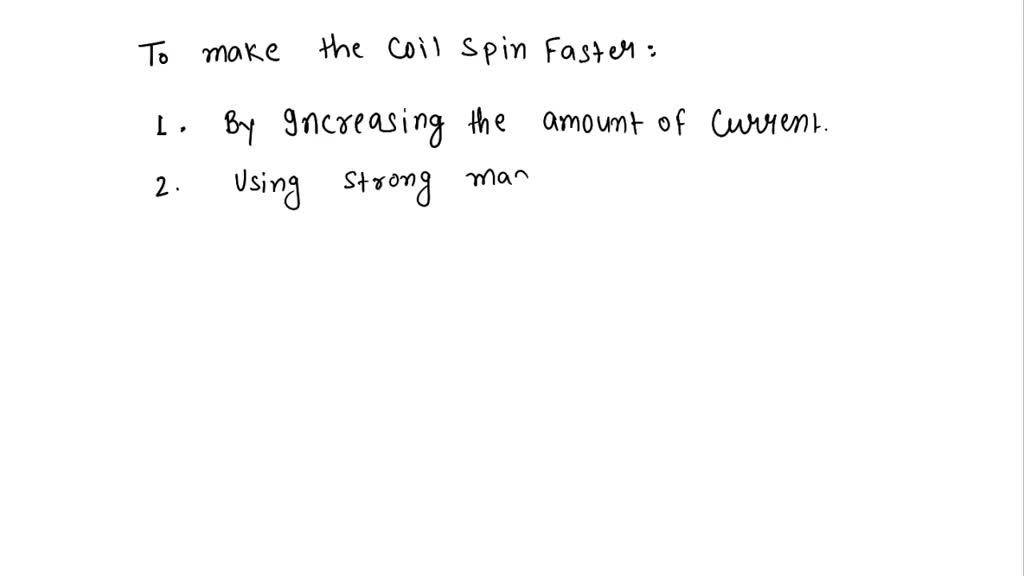 To make the coil spin Faster:
1. By Increasing the amount of current.
2. Using strong man